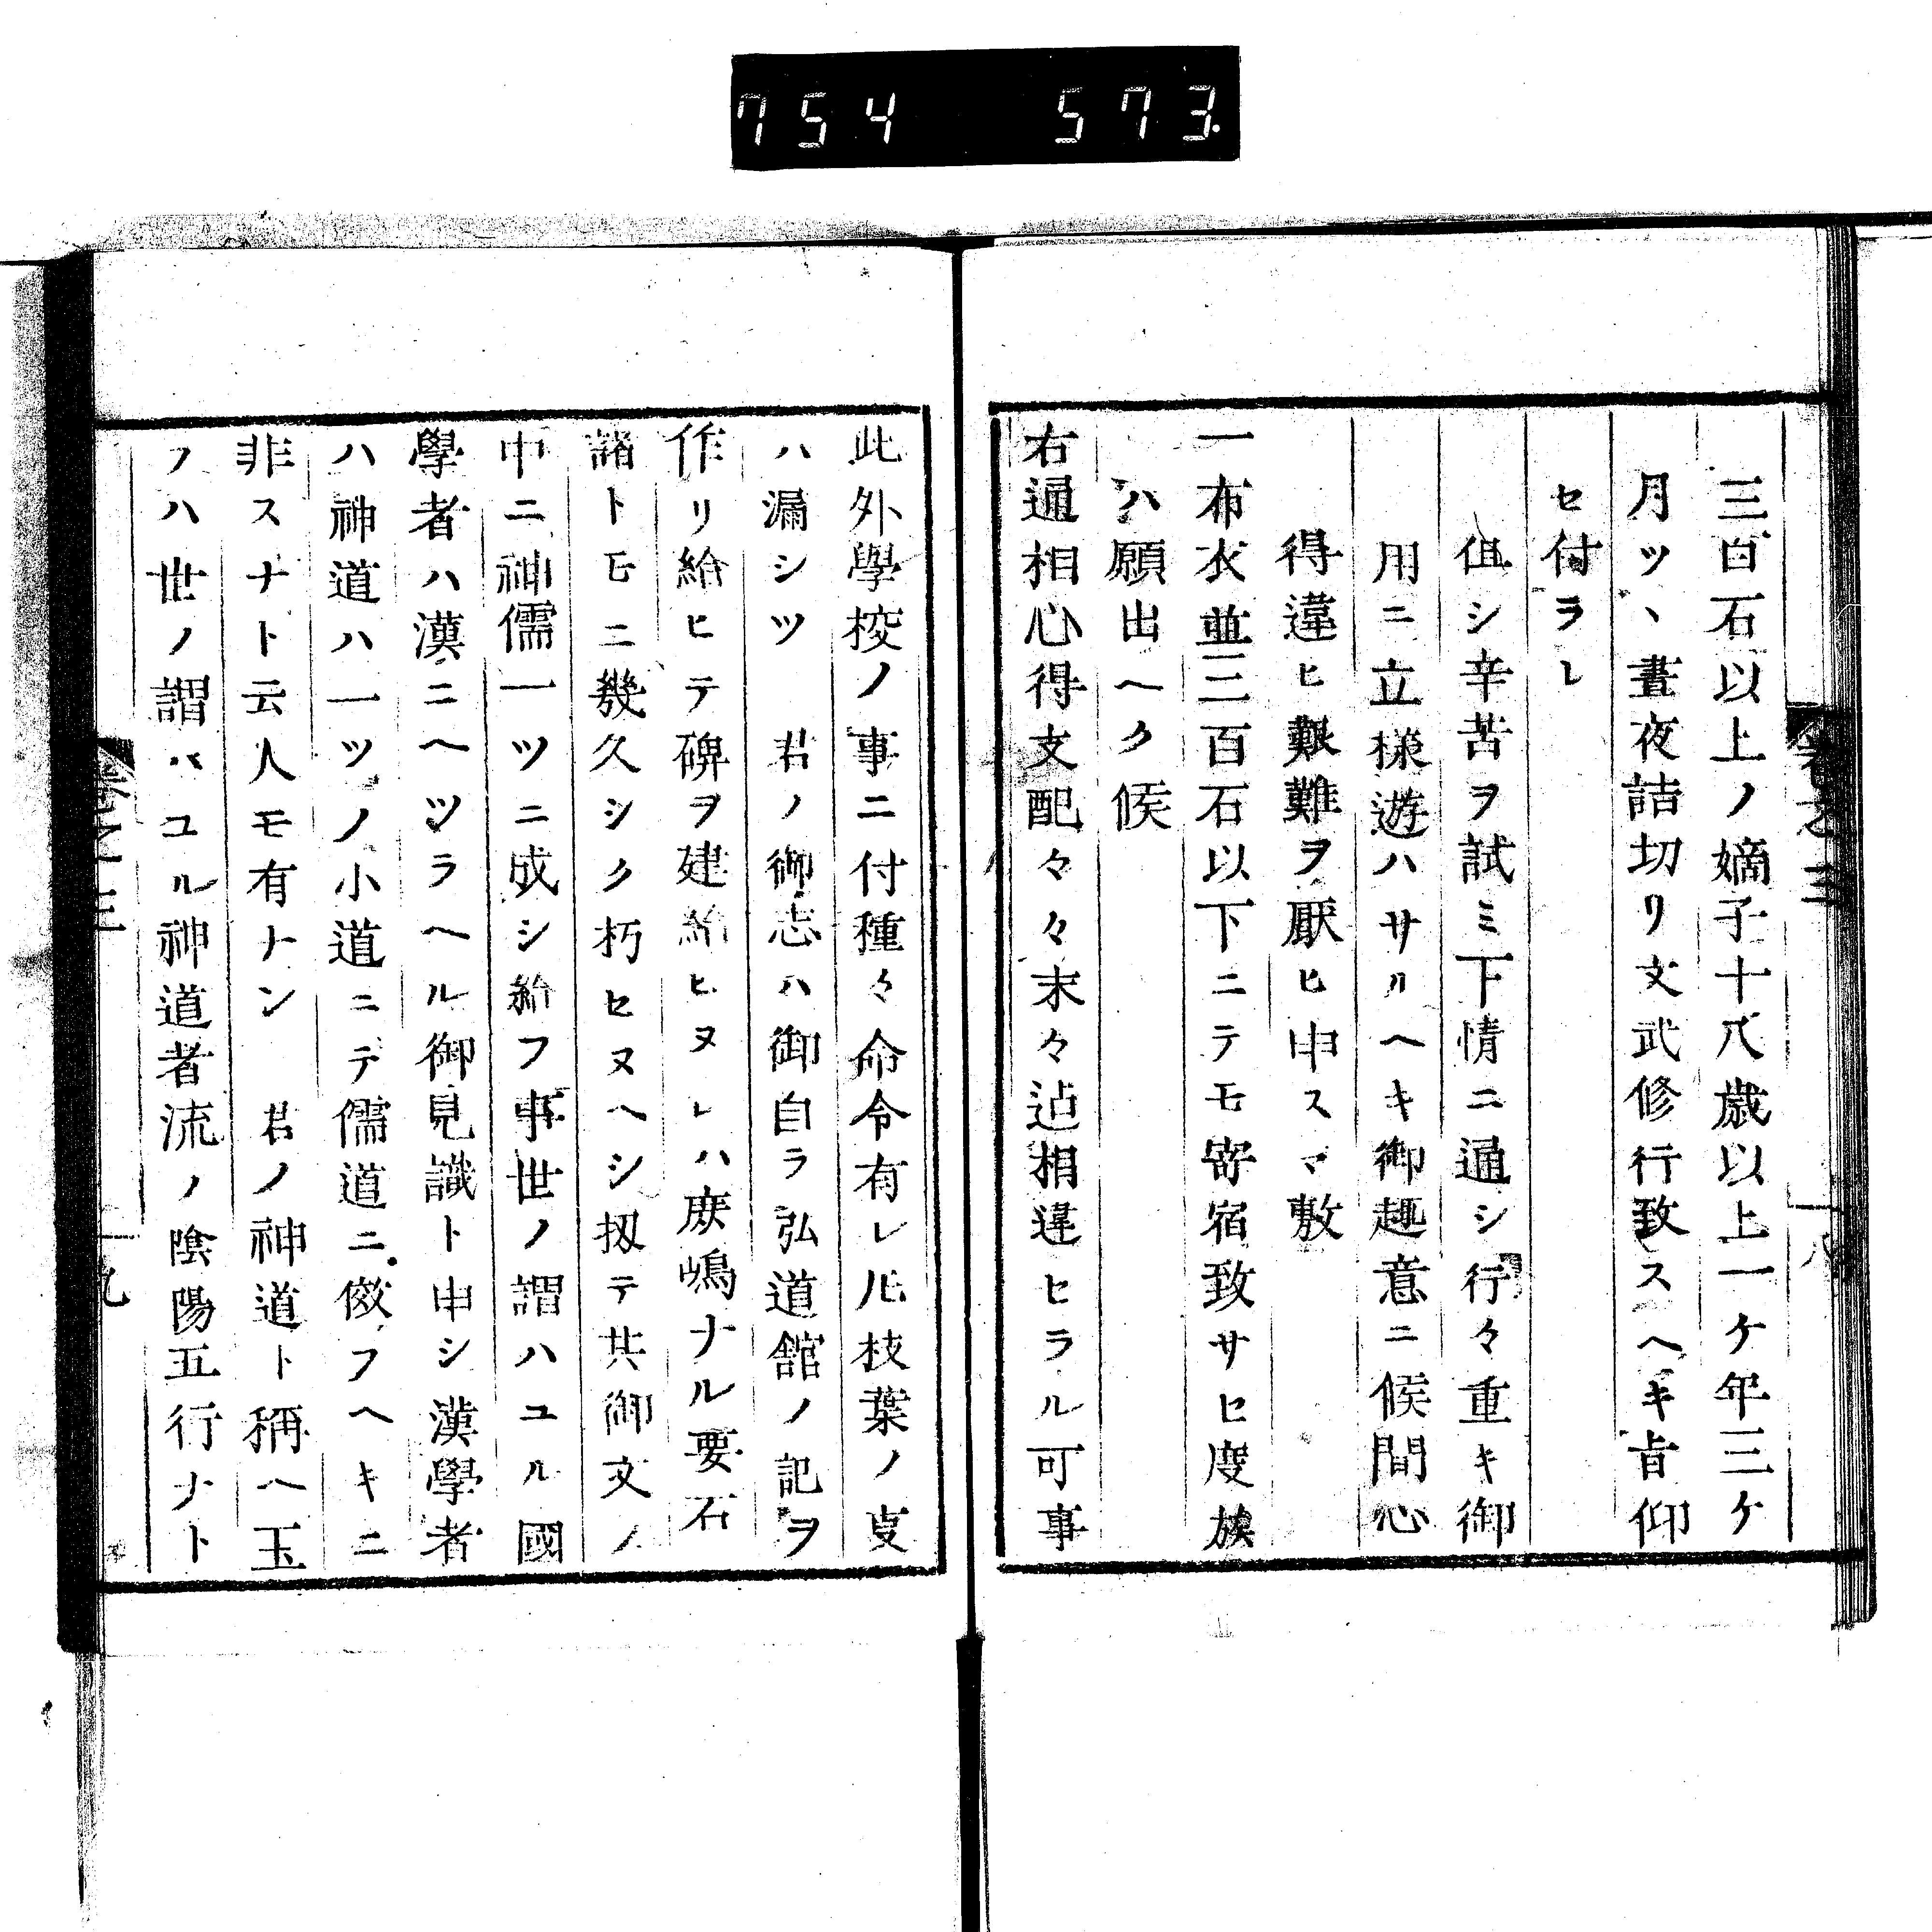 754 573.
三百石以上ノ嫡子十八歳以上一ケ年三ケ
月ツヽ晝夜詰切リ文武修行致スヘキ旨仰
セ付ラレ
但シ辛苦ヲ試ミ下情ニ通シ行々重キ御
用ニ立樣遊ハサルヘキ御趣意ニ候間心
得違ヒ艱難ヲ厭ヒ申スマ敷
一布衣並三百石以下ニテモ寄宿致サセ度族
ハ願出ヘク候
右通相心得支配々々末々迠相違ヒラル可事
此外學校ノ事ニ付種々命令有レ𪜈枝葉ノ叓
ハ漏シツ 君ノ御志ハ御自ラ弘道舘ノ記ヲ
作リ給ヒテ碑ヲ建給ヒヌレハ鹿嶋ナル要石
諸トモニ幾久シク朽セヌヘシ扨テ其御文ノ
中ニ神儒一ツニ成シ給フ事世ノ謂ハユル國
學者ハ漢ニヘツラヘル御見識ト申シ漢學者
ハ神道ハ一ツノ小道ニテ儒道ニ傚フヘキニ
非スナト云人モ有ナン 君ノ神道ト稱ヘ玉
フハ世ノ謂バユル神道者流ノ陰陽五行ナト
卷之三
十八
卷之三
十九